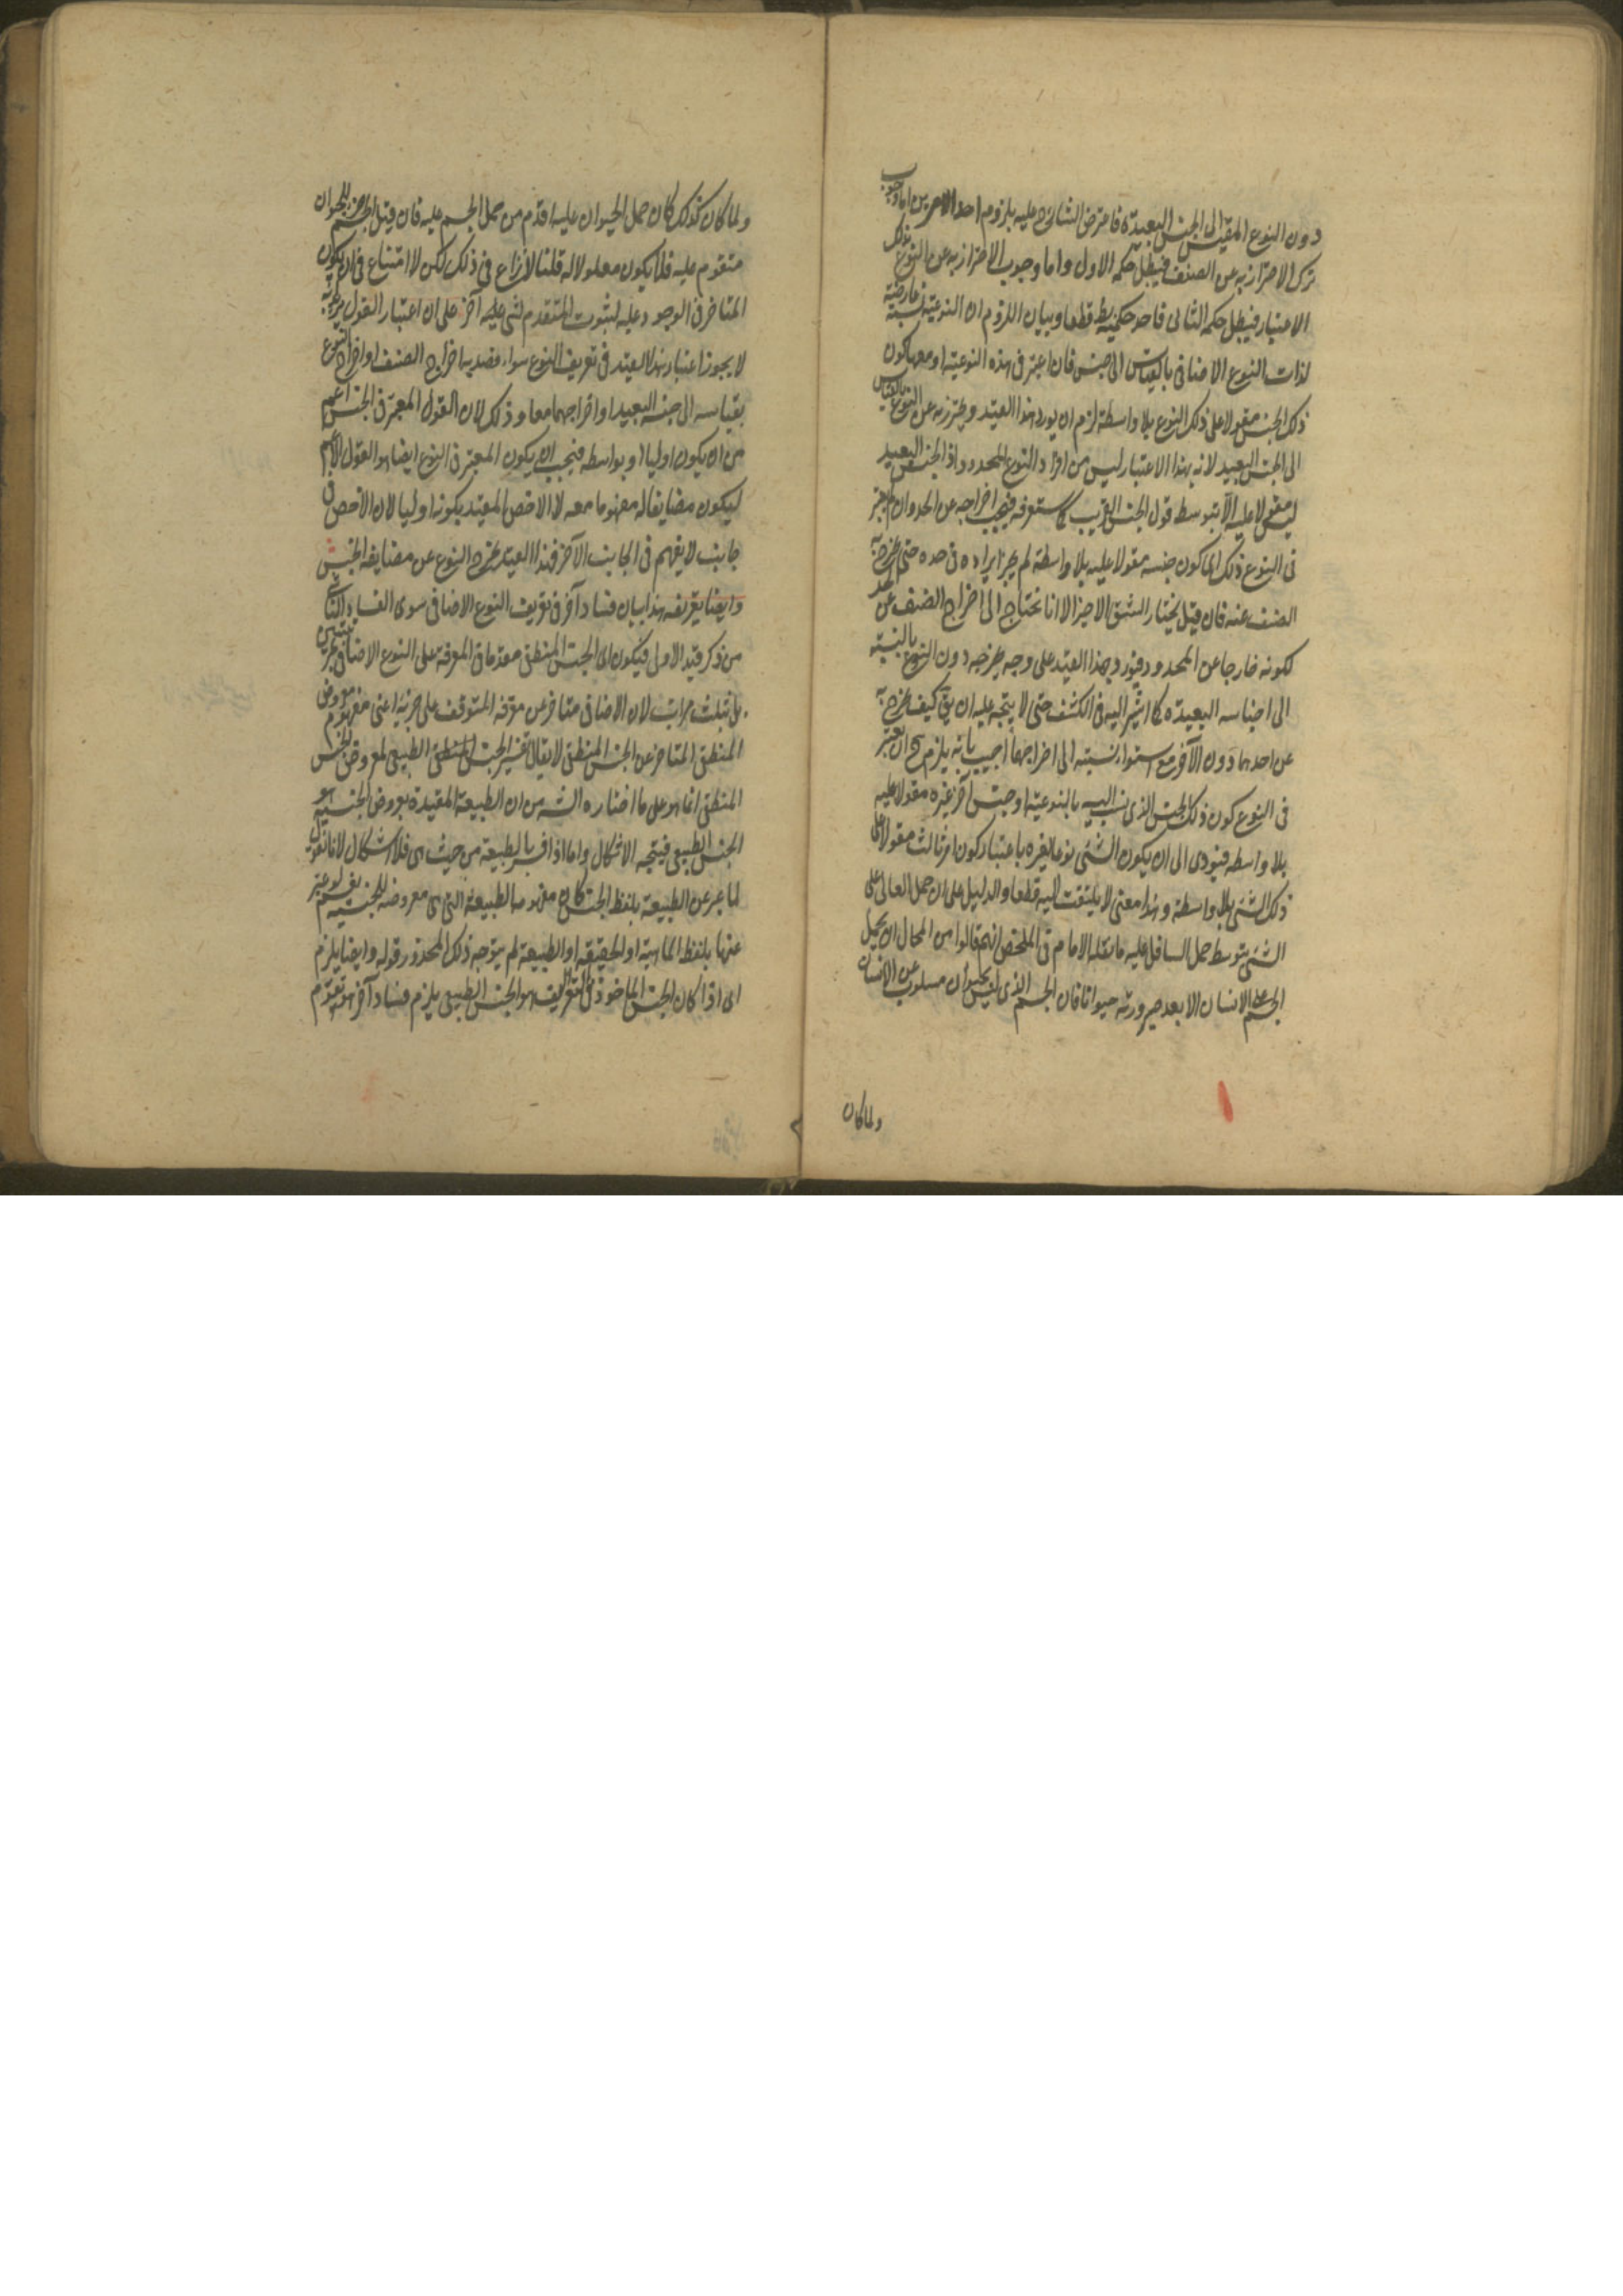 دون النوع المقيس الى الجنس البعيدة فاعترض الشارح عليه بلزوم احد الامرين اما وجوب
ترك الاحتراز به عن الصنف فيبطل حكمه الاول واما وجوب الاحتراز به عن النوع بذلك
الاعتبار فيبطل حكمه الثانى فاحد حكميه بط قطعا وبيان اللزوم ان النوعية نسبة عارضة
لذات النوع الاضافى بالقياس الى جنس فان اعتبر فى هذه النوعية ومعها كون
ذلك الجنس مقولا على ذلك النوع بلا واسطة لزم ان يورد هذا القيد ويحترز به عن النوع بالقياس
الى الجنس البعيد لانه بهذا الاعتبار ليس من افراد النوع المحدود اذ الجنس البعيد
ليس مقولا عليه الا بتوسط قول الجنس القريب كما ستعرفه فيجب اخراجه عن الحد وان لم يعتبر
فى النوع ذلك اى كون جنسه مقولا عليه بلا واسطة لم يجز ايراده فى حده حتى يخرج به
الصنف عنه فان قيل نختار الشق الاخير الا انا نحتاج الى اخراج الصنف عن الحد
لكونه خارجا عن المحدود فيورد هذا القيد على وجه يخرجه دون النوع بالنسبة
الى اجناسه البعيدة كما اشير اليه فى الكشف حتى لا يتجه عليه ان يق كيف يخرج به
عن احدهما دون الآخر مع استواء نسبته الى اخراجهما اجيب بانه يلزم ح ان يعتبر
فى النوع كون ذلك الجنس الذى نسب اليه بالنوعية او جنس آخر غيره مقولا عليه
بلا واسطه فيودى الى ان يكون الشئ نوعا لغيره باعتبار كون امر ثالث مقولا على
ذلك الشئ بلا واسطة وهذا معنى لا يلتفت اليه قطعا والدليل على ان حمل العالى على
الشئ بتوسط حمل السافل عليه ما نقله الامام فى الملخص انهم قالوا من المحال ان يحمل
الجسم على الانسان الا بعد صيرورته حيوانا فان الجسم الذى ليس بحيوان مسلوب عن الانسان
ولما كان
ولما كان كذلك كان حمل الحيوان عليه اقدم من حمل الجسم عليه فان قيل الجسم جزء للحيوان
متقوم عليه فلا يكون معلولا له قلنا لا نزاع فى ذلك لكن لا امتناع فى ان يكون
المتاخر فى الوجود علة لثبوت المتقدم لشئ عليه آخر على ان اعتبار القول
لا يجوز اعتبار هذا القيد فى تعريف النوع سواء قصد به اخراج الصنف او اخراج النوع
بقياسه الى جنسه البعيد او اخراجهما معا وذلك لان القول المعتبر فى الجنس اعم
من ان يكون اوليا او بواسطه فيجب ان يكون المعتبر فى النوع ايضا هو القول الاعم
ليكون مضايفا له مفهوما معه لا الاخص المقيد بكونه اوليا لان الاخص فى
جانب لا يفهم فى الجانب الآخر فهذا القيد يخرج النوع عن مضايفة الجنس
وايضا تعريفه هذا بيان فساد آخر فى تعريف النوع الاضافى سوى الفساد الناشى
من ذكر قيد الاول فيكون اى الجنس المنطقى مقدما فى المعرفة على النوع الاضافى بمرتبتين
بل بثلث مراتب لان الاضافى متاخر عن معرفه المتوقف على جزئه اعنى مفهوم معروض
المنطقى المتاخر عن الجنس المنطقى لا يقال تفسير الجنس المنطقى الطبيعى لمعروض الجنس
المنطقى انما هو على ما اختاره الش من ان الطبيعة المقيدة بعروض الجنسية هو
الجنس الطبيعى فيتجه الاشكال واما اذا فسر بالطبيعة من حيث هى فلا اشكال لانا نقول
لما عبر عن الطبيعة بلفظ الجنس كان مفهومها الطبيعة التى هى معروضة للجنسية نعم لو عبر
عنها بلفظ الماهية او الحقيقة او الطبيعة لم يتوجه ذلك المحذور قوله وايضا يلزم
اى اذا كان الجنس الماخوذ فى التعريف هو الجنس الطبيعى يلزم فساد آخر هو تقدم